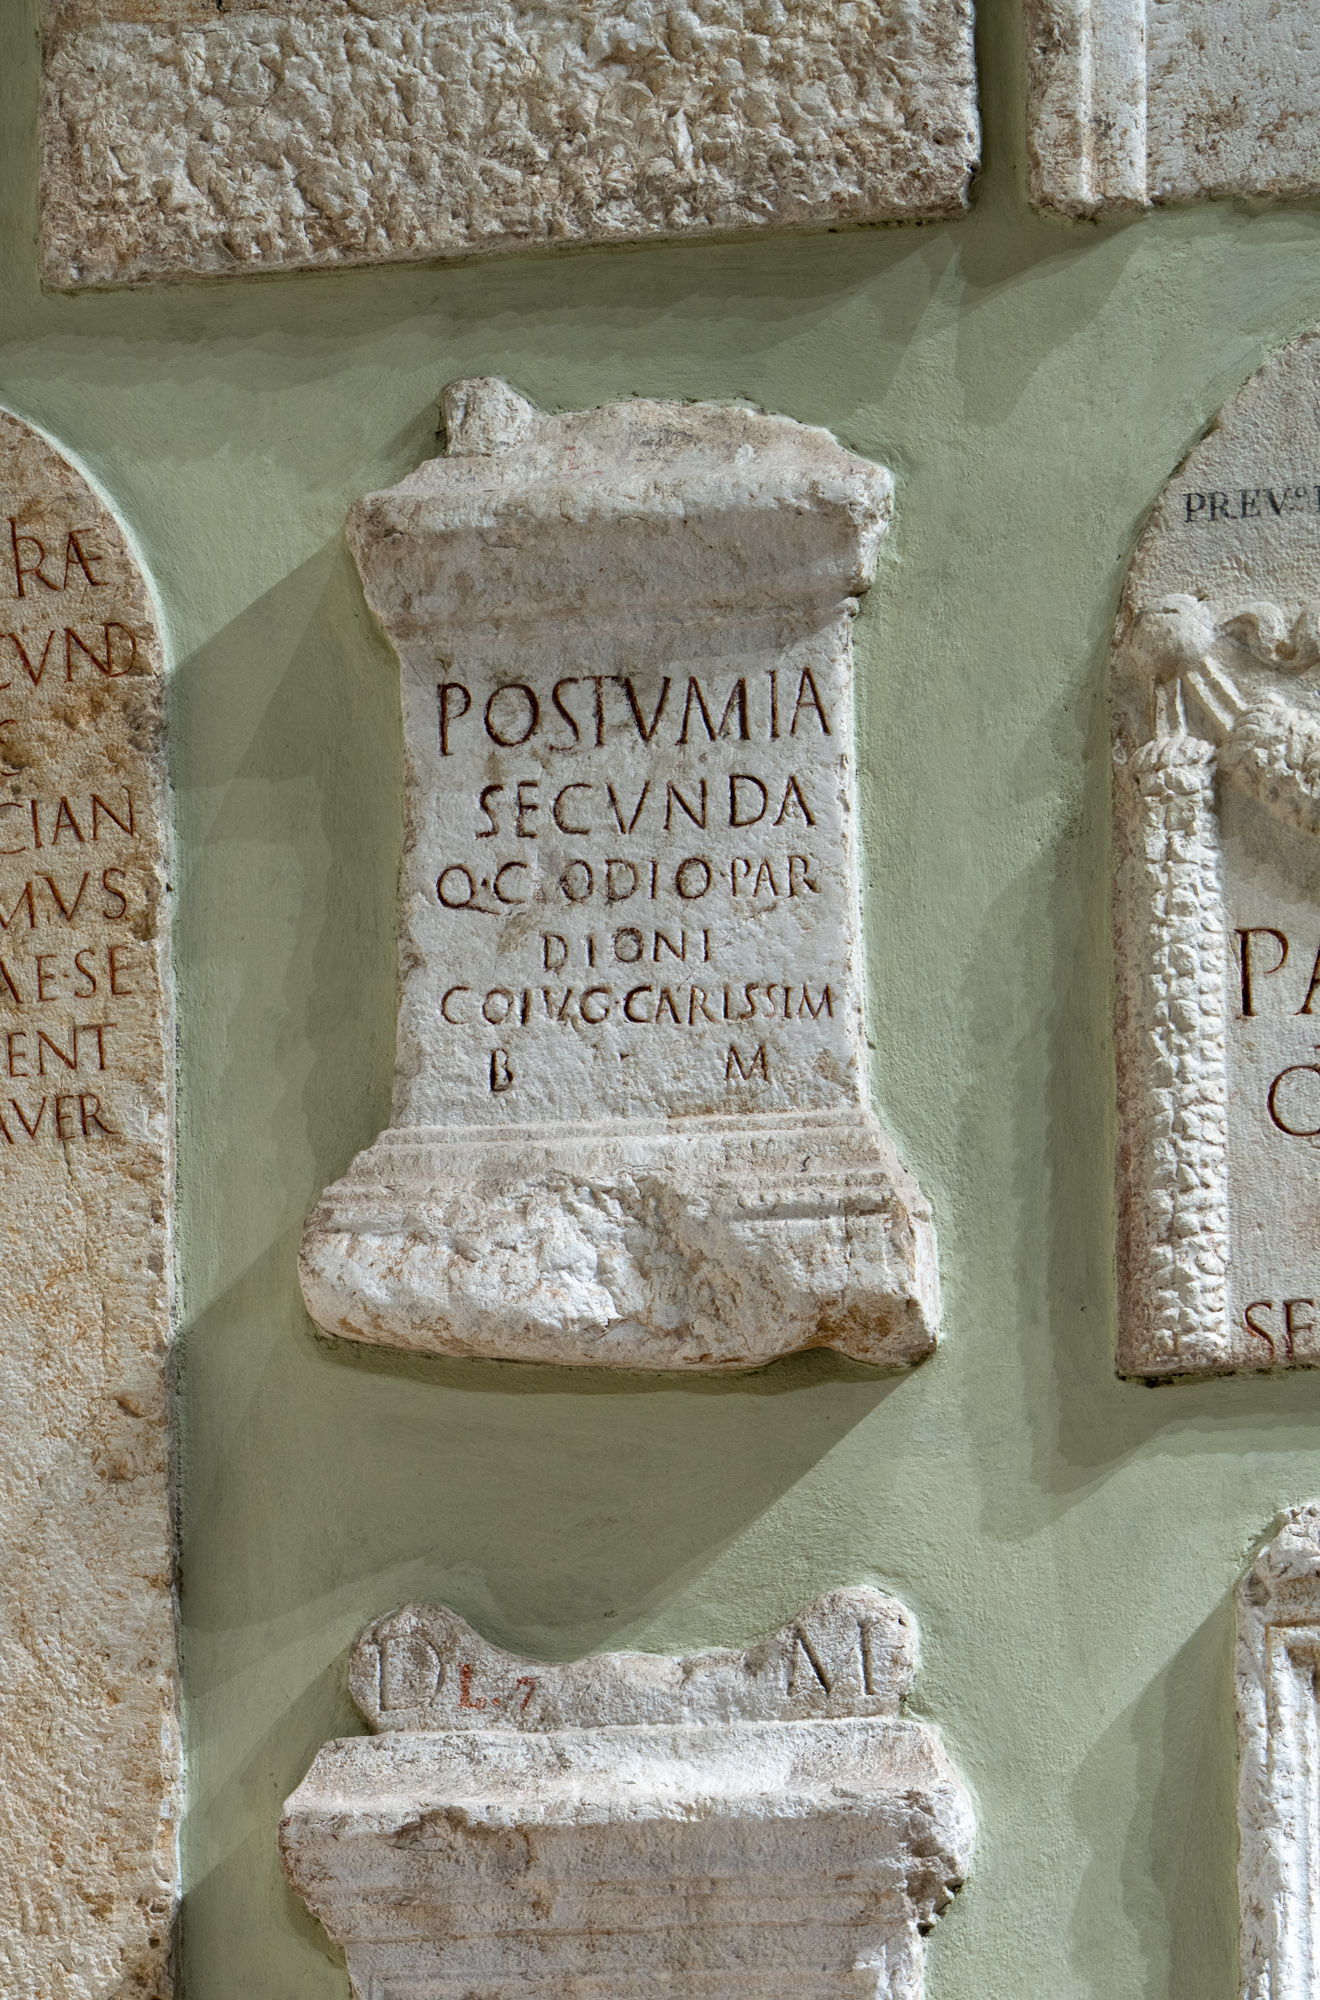 RAE
CVND
CIAN
MVS
AE·SE
ENT
AVER
POSTVMIA
SECVNDA
Q·CLODIO·PAR
DIONI
COIVG·CARISSIM
B · M
PREV
PA
SE
D L.7 M